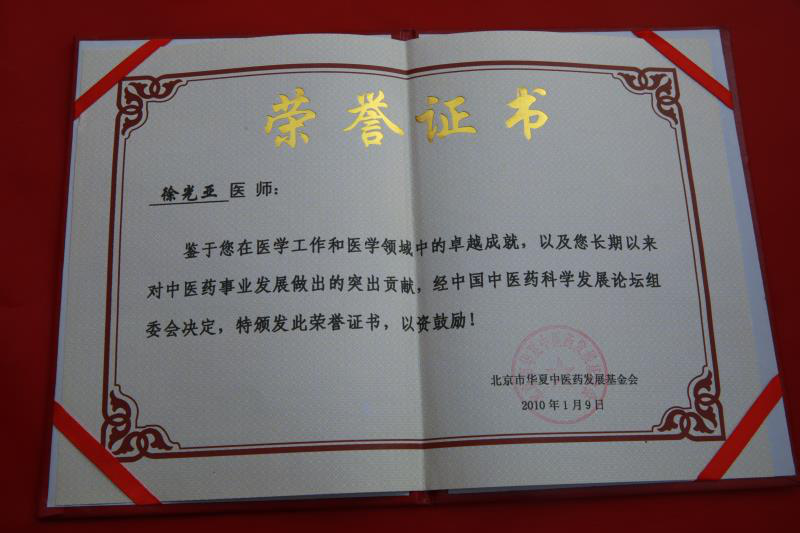 荣誉证书
徐光亚 医师：
鉴于您在医学工作和医学领域中的卓越成就，以及您长期以来
对中医药事业发展做出的突出贡献，经中国中医药科学发展论坛组
委会决定，特颁发此荣誉证书，以资鼓励！
北京市华夏中医药发展基金会
2010年1月9日